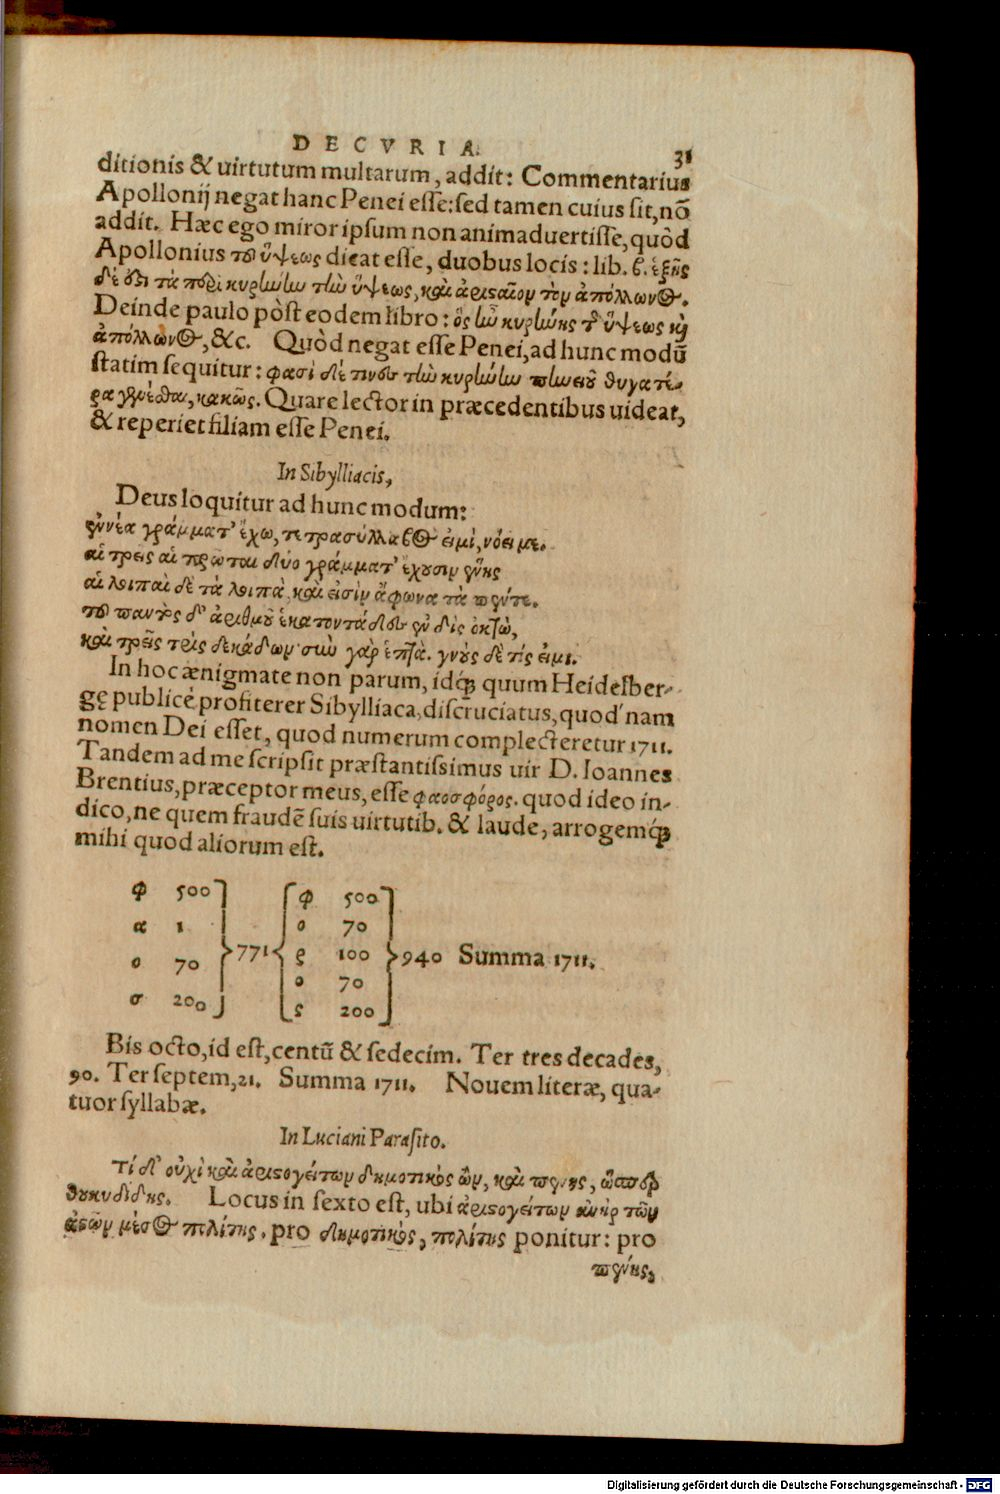 DECVRIA. 31
ditionis & uirtutum multarum, addit: Commentarius
Apollonij negat hanc Penei esse: sed tamen cuius sit, nō
addit. Hæc ego miror ipsum non animaduertisse, quòd
Apollonius τοῦ ὕψεως dicat esse, duobus locis: lib. β. ἑξῆς
δέ ὅτι τὰ περὶ κυρήνην τὴν ὕψεως, καὶ ἀρισαῖον τὸν ἀπόλλωνος.
Deinde paulo pòst eodem libro: ὃς ἦν κυρήνης τ͂ ὕψεως κỳ
ἀπόλλωνος, &c. Quòd negat esse Penei, ad hunc modū
statim sequitur: φασὶ δέ τινες τὴν κυρήνην πηνειοῦ θυγατέ-
ρα γενέσθαι, κακῶς. Quare lector in præcedentibus uideat,
& reperiet filiam esse Penei.
In Sibylliacis,
Deus loquitur ad hunc modum:
ἐννέα γράμματ' ἔχω, τετρασύλλαβος εἰμὶ, νόει με.
αἱ τρεις αἱ πρῶται δύο γράμματ' ἔχουσιν ἕκης
αἱ λοιπαὶ δὲ τὰ λοιπὰ, καὶ εἰσὶν ἄφωνα τὰ πέντε.
τοῦ παντὸς δ' ἀριθμοῦ ἑκατοντάδες ἐν δὶς ὀκτὼ,
καὶ τρεῖς τρὶς δεκάδων· σὺν γὰρ ἑπτὰ. γνοὺς δὲ τίς εἰμι.
In hoc ænigmate non parum, idq́; quum Heidelber-
gę publicè profiterer Sibylliaca, discruciatus, quod'nam
nomen Dei esset, quod numerum complecteretur 1711.
Tandem ad me scripsit præstantissimus uir D. Ioannes
Brentius, præceptor meus, esse φαοσφόρος. quod ideo in-
dico, ne quem fraudē suis uirtutib. & laude, arrogemq́;
mihi quod aliorum est.
φ 500 φ 500
α 1 ο 70
771 ρ 100 940 Summa 1711.
ο 70 ο 70
σ 200 ς 200
Bis octo, id est, centū & sedecim. Ter tres decades,
90. Ter septem, 21. Summa 1711. Nouem literæ, qua-
tuor syllabæ.
In Luciani Parasito.
Τί δ' οὐχὶ καὶ ἀρισογείτων δημοτικὸς ὢν, καὶ πένης, ὥσπερ
θουκυδίδης. Locus in sexto est, ubi ἀρισογείτων ἀνὴρ τῶν
ἀςῶν μέσος πολίτης. pro δημοτικὸς, πολίτης ponitur: pro
πένης,
Digitalisierung gefördert durch die Deutsche Forschungsgemeinschaft - DFG